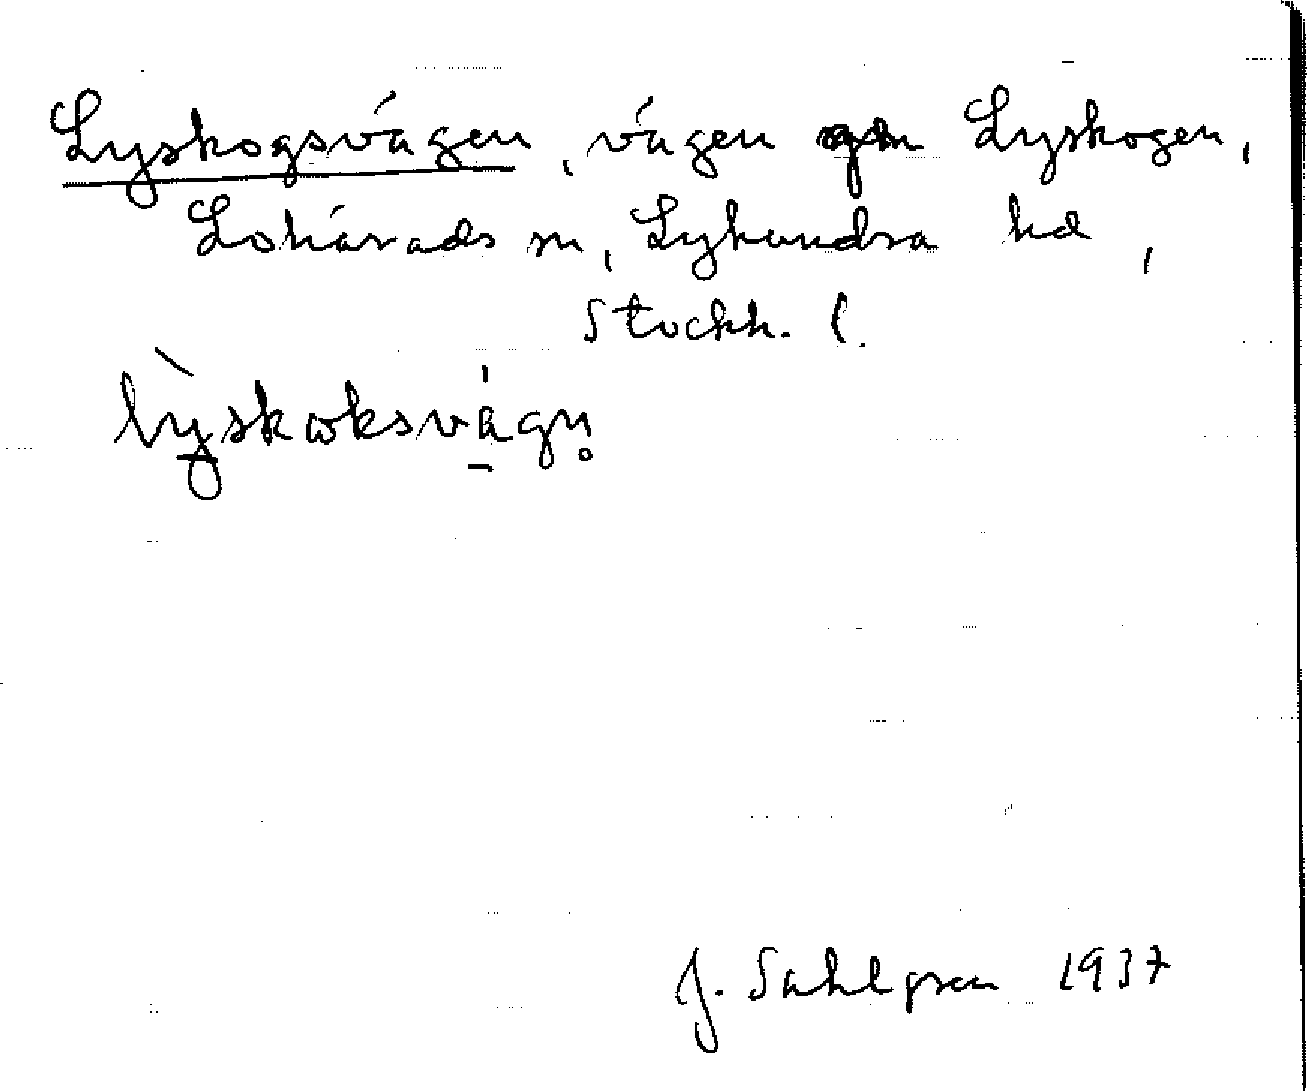 Lyskogsvägen, vägen gm Lyskogen,
Lohärads sn, Lyhundra hd,
Stockh. l.
lỳskoksvägn̥
J. Sahlgren 1937